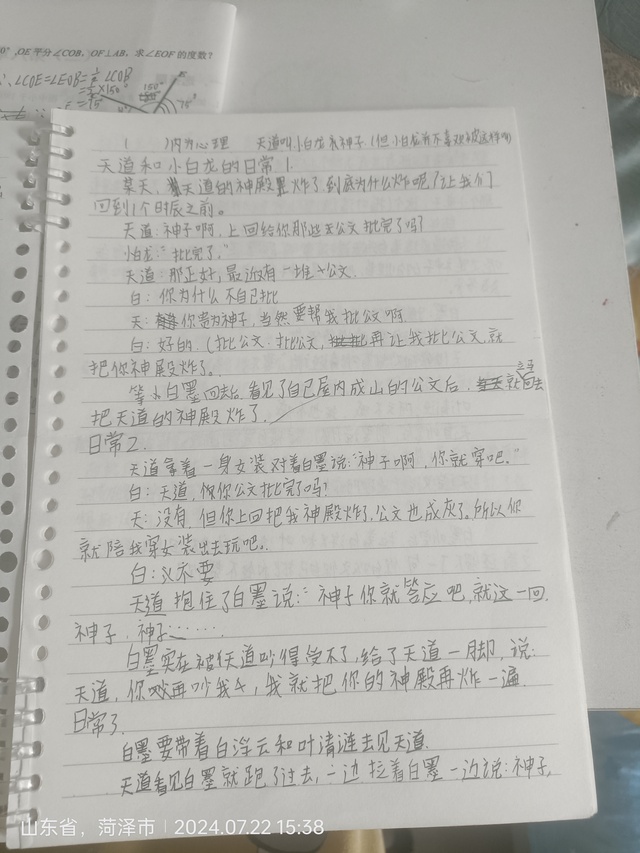 0°,OE平分∠COB，OF⊥AB，求∠EOF的度数？
∠COE=∠EOB=½∠COB
=½×150°
=75°
150°
E
75°
( )内为心理 天道叫小白龙为神子(但小白龙并不喜欢被这样叫
天道和小白龙的日常1.
某天、天道的神殿炸了到底为什么炸呢？让我们
回到1个时辰之前。
天道:神子啊，上回给你那些天公文批完了吗?
小白龙:“批完了.”
天道:那正好,最近有一堆公文.
白:你为什么不自己批
天:你贵为神子,当然要帮我批公文啊
白:好的.(批公文,批公文,再让我批公文.就
把你神殿炸了.
等小白墨回去后.看见了自己屋内成山的公文后,就回去
把天道的神殿炸了.
日常2.
天道拿着一身女装对着白墨说:“神子啊,你就穿吧.”
白:天道,你公文批完了吗?
天:没有.但你上回把我神殿炸了.公文也成灰了.所以你
就陪我穿女装出去玩吧.
白:不要
天道抱住了白墨说:“神子你就答应吧,就这一回.
神子.神子……
白墨实在被天道吵得受不了,给了天道一脚,说:
天道,你再吵我,我就把你的神殿再炸一遍
日常3.
白墨要带着白浮云和叶清涟去见天道.
天道看见白墨就跑了过去,一边拉着白墨一边说:神子,
山东省，菏泽市 | 2024.07.22 15:38